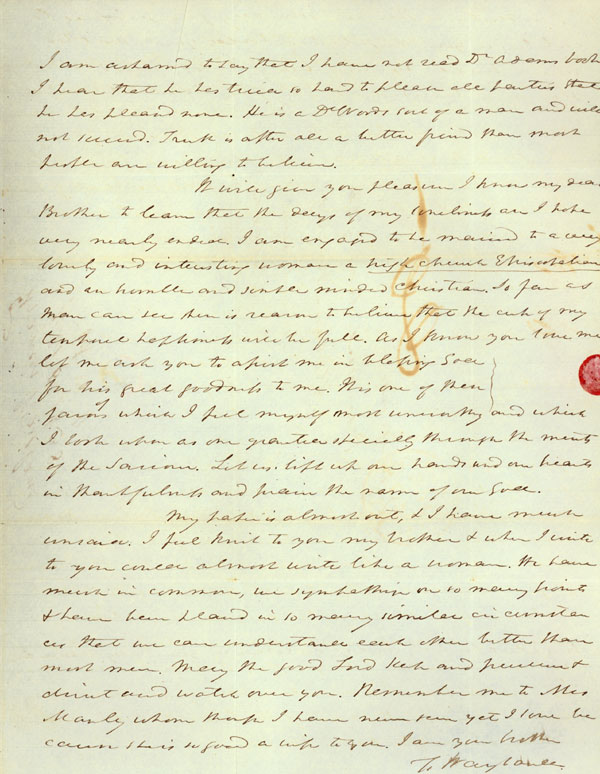 I am asham'd to say that I have not read Dr Adams book
I hear that he has tried so hard to please all parties that
he has pleased none. He is a Dr Woods sort of a man and will
not succeed. Truth is after all a better friend than most
people are willing to believe.
It will give you pleasure I know my dear
Brother to learn that the days of my loneliness are I hope
very nearly ended. I am engaged to be married to a very
lovely and interesting woman a high church Episcopalian
and an humble and simple minded Christian. So far as
man can see there is reason to believe that the cup of my
temporal happiness will be full. As I know you love me
let me ask you to assist me in blessing God
for his great goodness to me. It is one of those
favors of which I feel myself most unworthy and which
I look upon as one granted specially through the merits
of the Saviour. Let us lift up our hands and our hearts
in thankfulness and praise the name of our God.
My paper is almost out, & I have much
unsaid. I feel knit to you my brother & when I write
to you could almost write like a woman. We have
much in common, we sympathise on so many points
& have been placed in so many similar circumstan
ces that we can understand each other better than
most men. May the good Lord keep and preserve &
direct and watch over you. Remember me to Mrs
Manly whom though I have never seen yet I love be
cause she is so good a wife to you. I am your brother
F. Wayland.